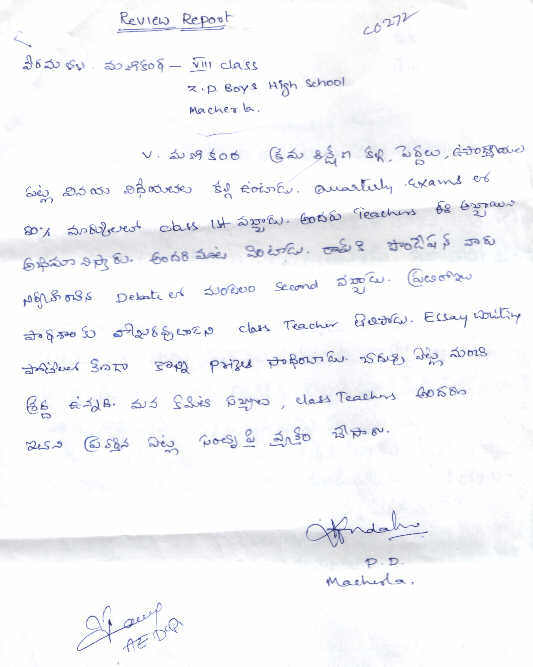 Review Report
CO272
వీరమళ్ల. మణికంఠ - VIII class
Z.P Boys High School
Macherla.
V. మణికంఠ క్రమశిక్షణ కల్గి, పెద్దలు, ఉపాధ్యాయుల
పట్ల వినయ విధేయతలు కల్గి ఉంటాడు. Quarterly Exams లో
80% మార్కులతో class 1st వచ్చాడు. అందరు Teachers ఈ అబ్బాయిని
అభిమానిస్తారు. అందరి మాట వింటాడు. ఫౌండేషన్ వారు
నిర్వహించిన Debate లో మండలం Second వచ్చాడు. ప్రతిరోజు
పాఠశాలకు హాజరవుతాడని class Teacher తెలిపాడు. Essay writing
పోటీలలో కూడా కొన్ని prizes సాధించాడు. చదువు పట్ల మంచి
శ్రద్ధ ఉన్నది. మన కమిటి సభ్యులు, class Teachers అందరూ
ఇతని ప్రవర్తన పట్ల సంతృప్తి వ్యక్తం చేసారు.
P.D.
Macherla.